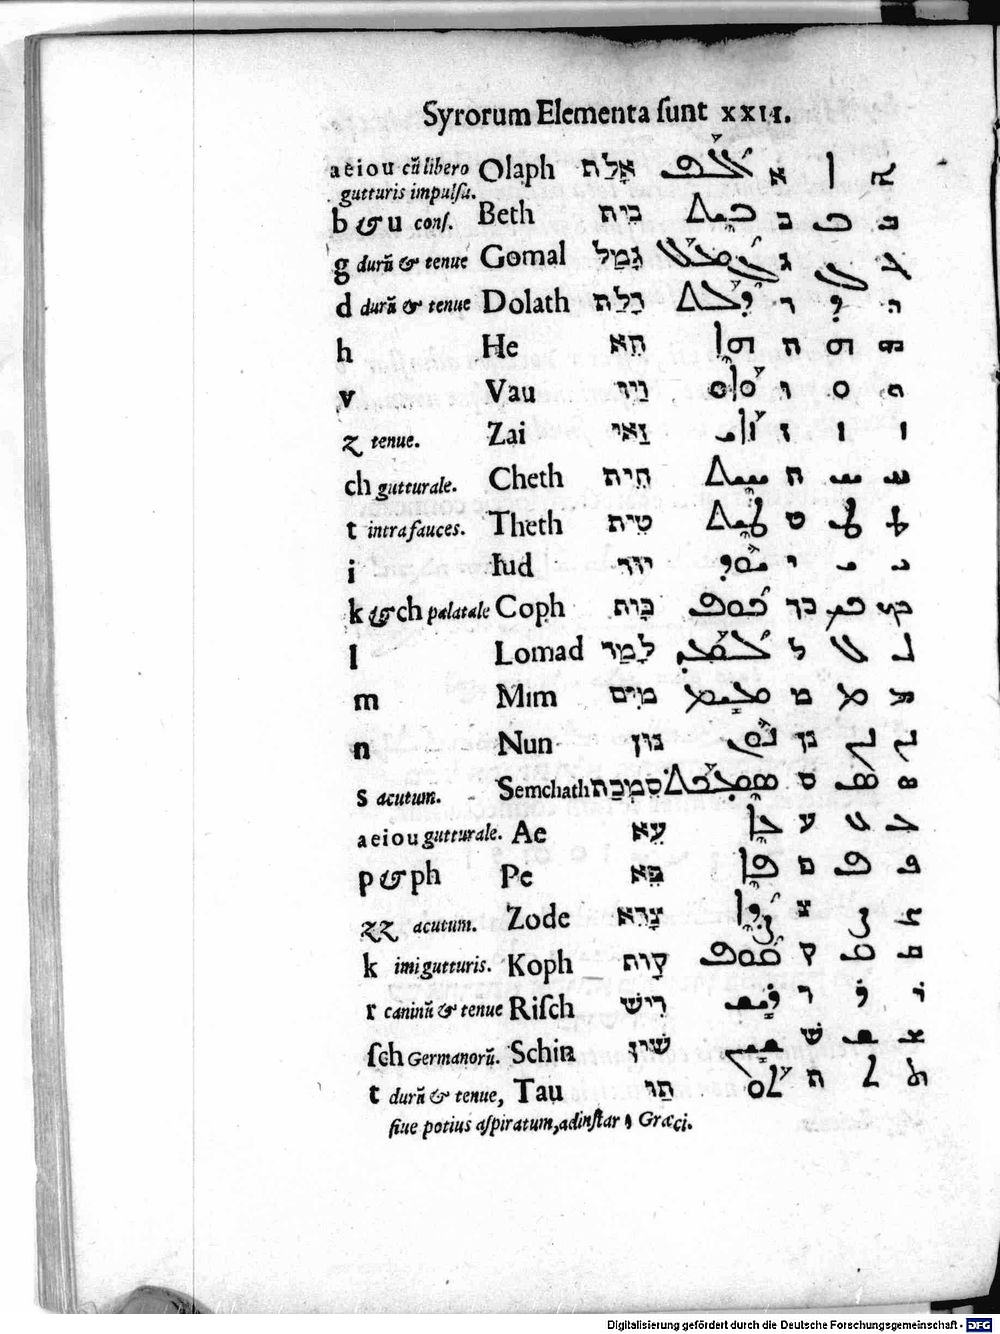 Syrorum Elementa ſunt XXII.
a e i o u cū libero Olaph אָלַת ܐ ا
gutturis impulſu.
b & u conſ. Beth בֵּית ܒܝܬ ב ܒ
g durū & tenue Gomal גָּמַל ג ܓ
d durū & tenue Dolath דָלַת ר ܕ
h He הֵא ܗܐ ה ܗ
v Vau וַיו ܘܐܘ ו ܘ
z tenue. Zai זַאי ܙܐܝ ז ܙ
ch gutturale. Cheth חֵית ܚܝܬ ח ܚ
t intra fauces. Theth טֵית ܛܝܬ ט ܛ
i Iud יוּד ܝܘܕ י ܝ
k & ch palatale Coph כָּוֹת ܟܘܦ כך ܟ
l Lomad לָמַד ܠܡܕ ל ܠ
m Mim מִים ܡܝܡ מ ܡ
n Nun נוּן ܢܘܢ נן ܢ
s acutum. Semchath סִמְכַת ܣܡܟܬ ס ܣ
a e i o u gutturale. Ae עֵא ܥܐ ע ܥ
p & ph Pe פֵּא ܦܐ פ ܦ
zz acutum. Zode צָדֵא ܨܕܐ צ ܨ
k imi gutturis. Koph קוֹת ܩܘܦ ק ܩ
r caninū & tenue Riſch רִישׁ ܪܝܫ ר ܪ
ſch Germanorū. Schin שִׁין ܫܝܢ שׁ ܫ
t durū & tenue, Tau תַו ܬܘ ת ܬ
ſiue potius aſpiratum, ad inſtar θ Græci.
Digitalisierung gefördert durch die Deutsche Forschungsgemeinschaft - DFG